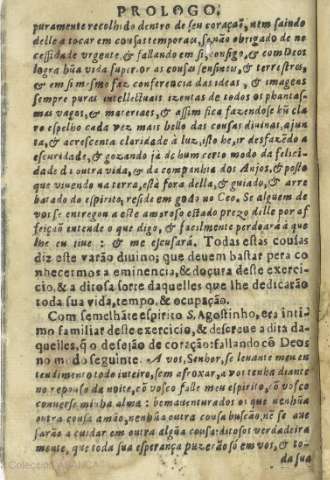 PROLOGO.
puramente recolhido dentro de seu coraçaõ, nem saindo
delle a tocar em cousas temporais, senão obrigado de ne
cessidade urgente, & fallando em si, consigo, & com Deos
logra hũa vida superior as cousas sensiueis, & terrestres,
& em si mesmo faz conferencia das ideas, & imagens
sempre puras intellectuais izentas de todos os phantas-
mas vagos, & materiaes, & assim fica fazendose hũ cla
ro espelho cada vez mais bello das cousas diuinas, ajun
ta, & acrescenta claridade à luz, isto he, ir desfazẽdo a
escuridade, & gozando já de hum certo modo da felici-
dade da outra vida, & da companhia dos Anjos, & posto
que viuendo na terra, està fora della, & guiado, & arre
batado do espirito, reside em godo no Ceo. Se alguem de
vos se entregou a este amoroso estado prezo delle por af
feiçaõ entende o que digo, & facilmente perdoarà o que
lhe eu tiue: & me escusarà. Todas estas cousas
diz este varão diuino; que deuem bastar pera co
nhecermos a eminencia, & doçura deste exerci-
cio, & a ditosa sorte daquelles que lhe dedicarão
toda sua vida, tempo, & ocupação.
Com semelhãte espirito S. Agostinho, era inti
mo familiar deste exercicio, & descreue a dita da
quelles, q̃ o desejão de coração: fallando cõ Deos
no modo seguinte. A vos, Senhor, se leuante meu en
tendimento todo inteiro, sem afroxar, a vos tenha diante
no repouso da noite, cõ vosco falle meu espirito, cõ vosco
converse minha alma: bemaventurados os que nenhũa
outra cousa amão, nenhũa outra cousa buscão, nẽ se aue
sarão a cuidar em outra algũa cousa: ditosos verdadeira
mente, que toda sua esperança puzerão só em vos, & to-
da sua
Coleccion